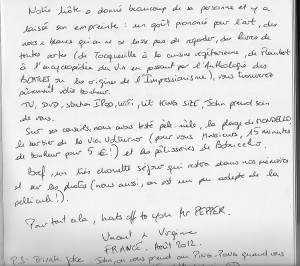 Notre hôte a donné beaucoup de sa personne et y a
laissé son empreinte : un goût prononcé pour l'art, des
murs si beaux qu'on ne se lasse pas de regarder, des livres de
toutes sortes (de Tocqueville à la cuisine végétarienne, de Flaubert
à l'encyclopédie du Vin en passant par l'Anthologie des
BEATLES ou les origines de l'Impressionnisme), vous trouverez
sûrement votre bonheur.
TV, DVD, station IPOD, WIFI, lit KING SIZE, John prend soin
de vous.
Sur ses conseils, nous avons testé pêle-mêle, la plage de MONDELLO,
le barbier de la Via Volturno (pour vous Messieurs, 15 minutes
de bonheur pour 5 € !) et les pâtisseries de
Bref, un très chouette séjour qui restera dans nos mémoires
et sur les photos (nous aussi, on est un peu adepte de la
pellicule !).
Pour tout cela, hats off to you Mr PEPPER.
Vincent & Virginie
FRANCE. Août 2012.
P.S: Private joke : John, on vous prend au PING-PONG quand vous